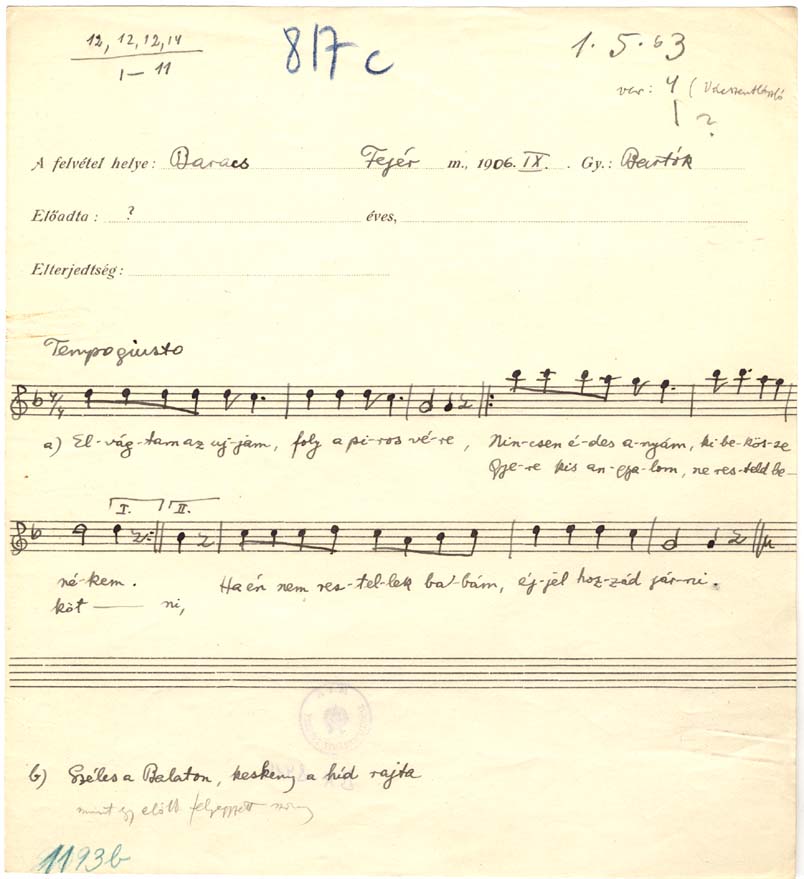 12, 12, 12, 14
1 – 11
817 c
1. 5. 63
var: 4 (Vácszentlászló
?
A felvétel helye: Baracs Fejér m., 1906. IX. Gy.: Bartók
Előadta: ? éves,
Elterjedtség:
Tempo giusto
4/4
a) El-vág-tam az uj-jam, foly a pi-ros vé-re, Nin-csen é-des a-nyám, ki be-kös-se
Gye-re kis an-gya-lom, ne res-teld be-
I. II.
né-kem. Ha én nem res-tel-lek ba-bám, éj-jel hoz-zád jár-ni.
köt — ni,
b) Széles a Balaton, keskeny a híd rajta
mint egy előtt feljegyzett
1193b